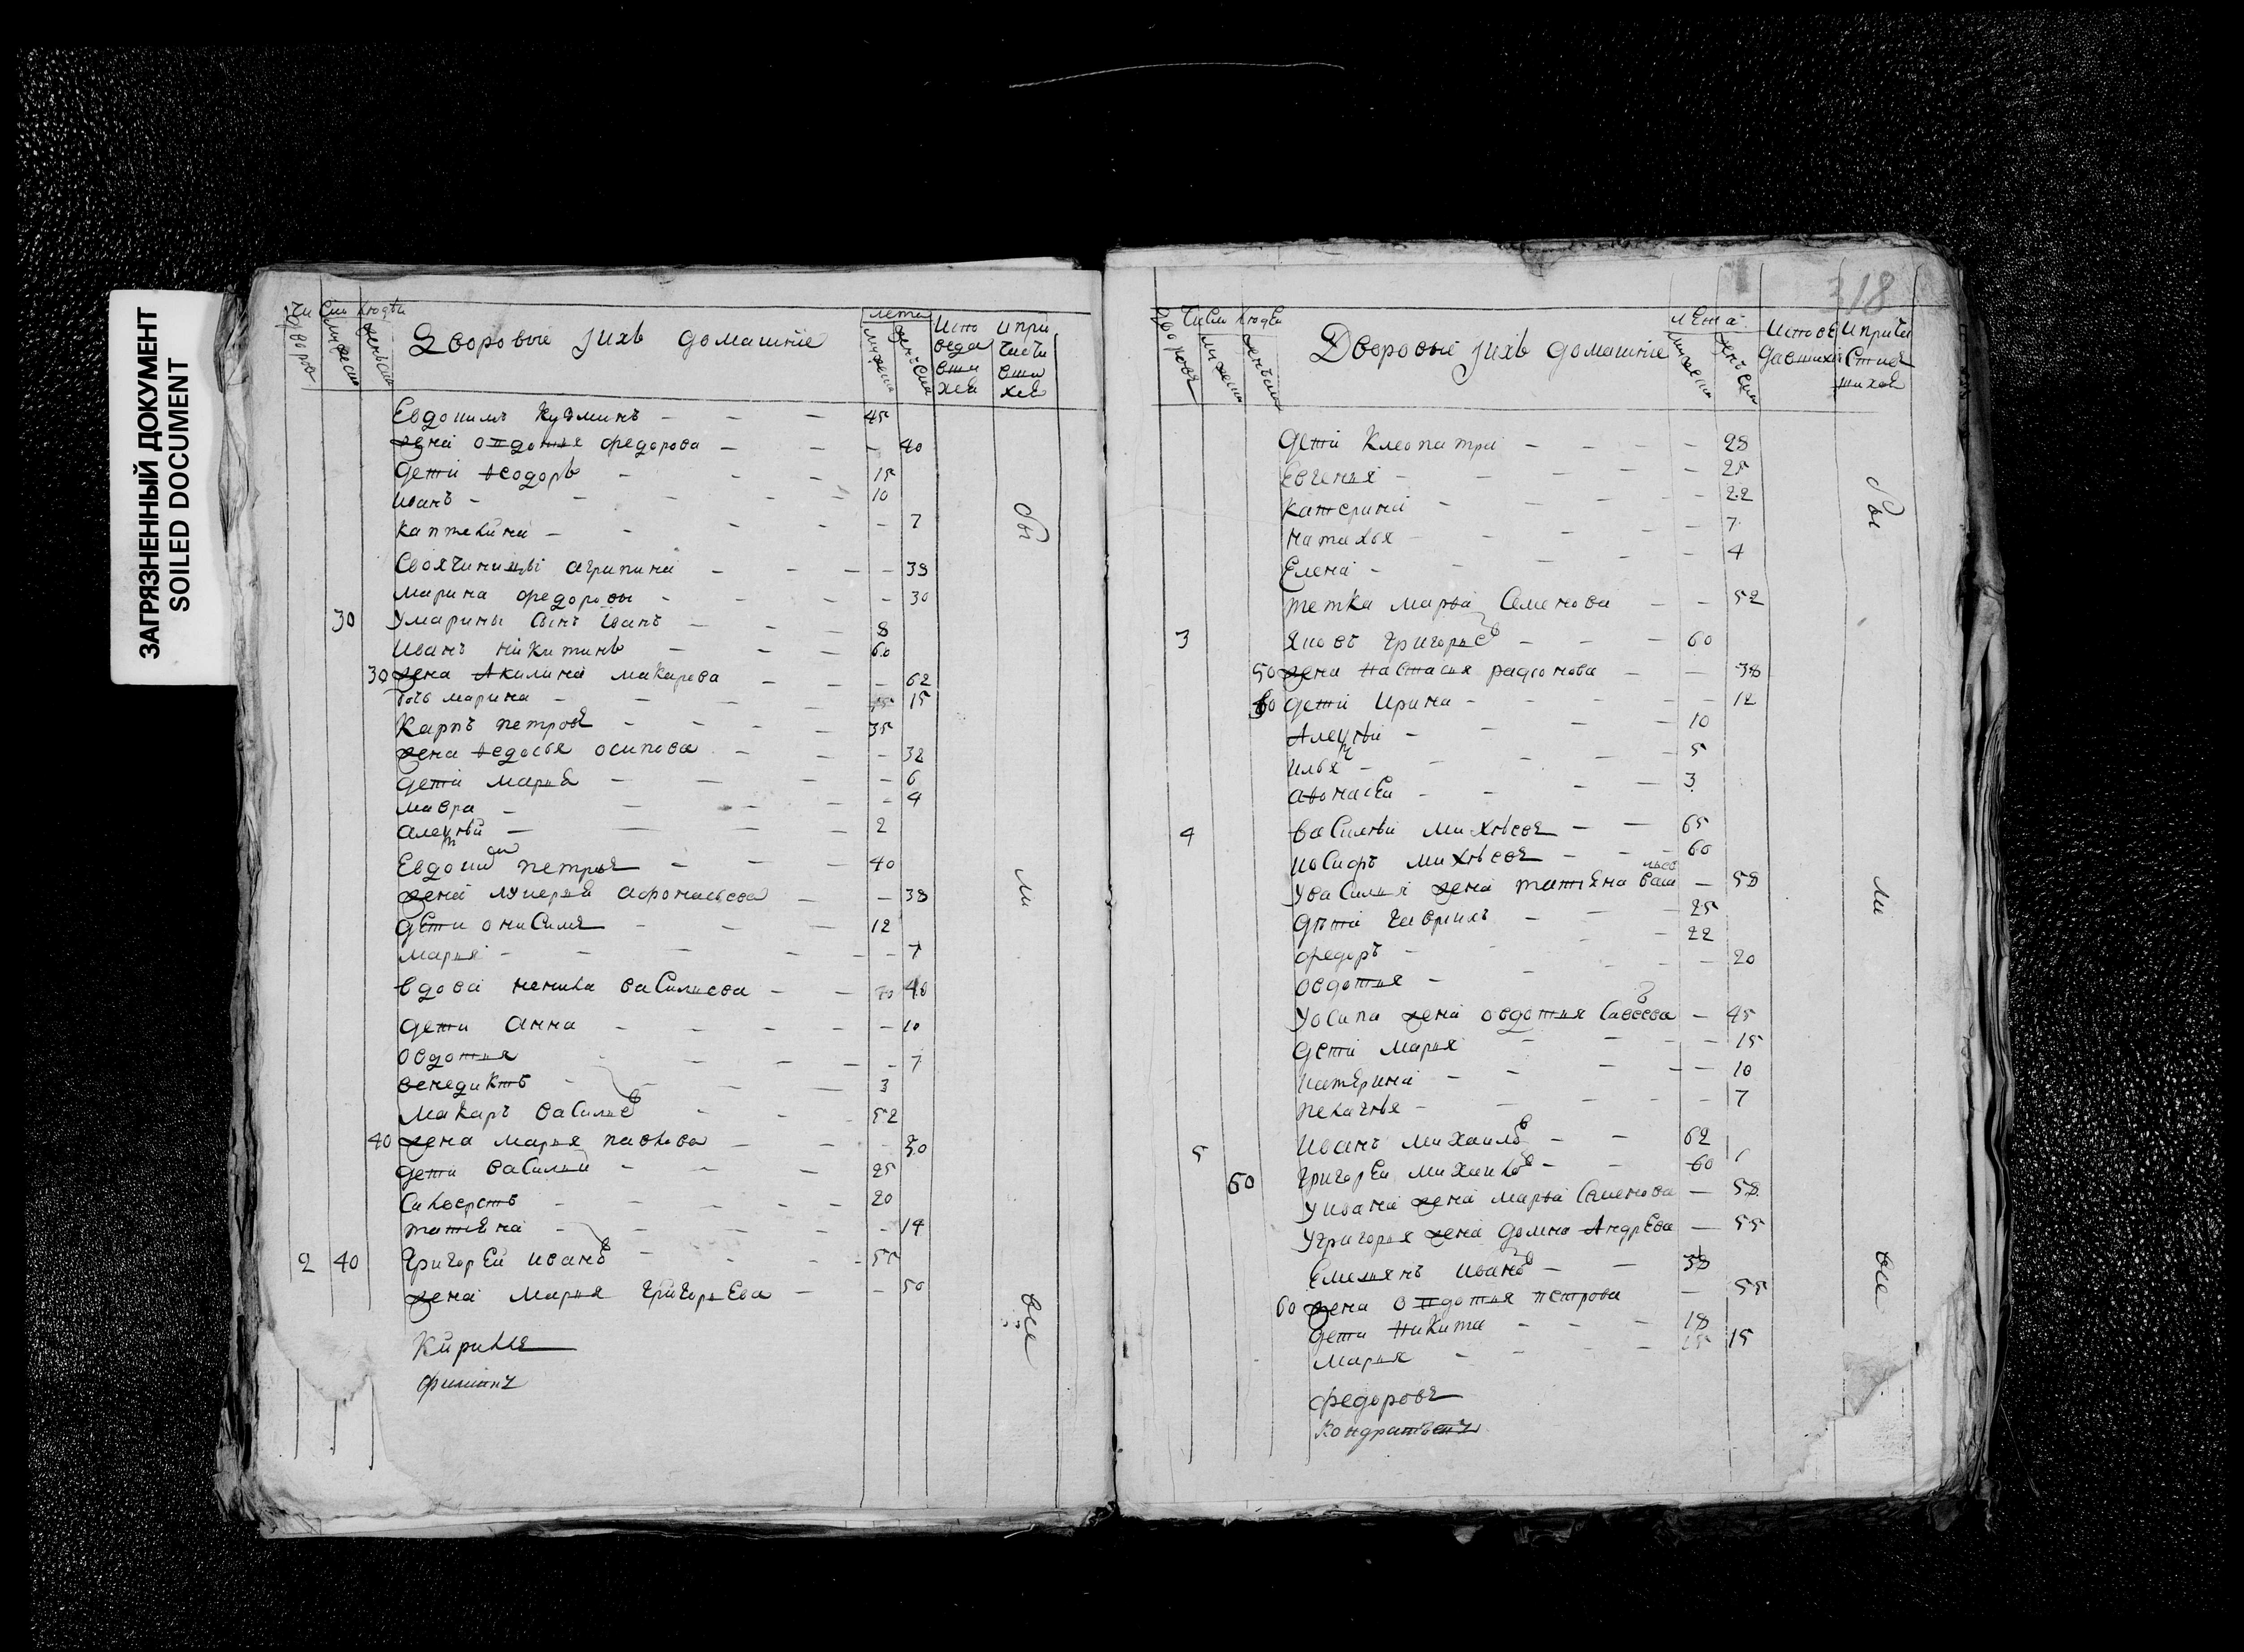 ЗАГРЯЗНЕННЫЙ ДОКУМЕНТ
SOILED DOCUMENT
Число людей
дворовъ
мужеска
женъска
Дворовые ихъ домашние
лета
мужеска
женъска
испо
веда
вши
хся
и при
чисти
вши
хся
Евдокимъ Кузминъ 45
жена овдотья федорова 40
дети ѳеодоръ 15
иванъ 10
каптелина 7
Своячиницы агрипина 38
марина федоровы 30
30 У марины сынъ иванъ 8
иванъ никитинъ 60
30 жена Акилина макарова 62
дочь марина 15
Карпъ петровъ 35
жена ѳедосья осипова 32
дети марья 6
мавра 4
алексѣй 2
Евдоким петровъ 40
жена лукерья афонасьева 38
дети онисимъ 12
марья 7
вдова ненила васильева 40
дети анна 10
овдотья 7
венедиктъ 3
макаръ васильев 52
40 жена марья павлова 50
дети василий 25
Силверстъ 20
татияна 14
2 40 Григорей иванов 55
жена марья григорьева 50
Кирилъ
филипъ
бы
ли
все
318
Число людей
дворовъ
мужеска
женъска
Дворовые ихъ домашние
лета
мужеска
женъска
испове
давшихся
и причи
стив
шихся
дети Клеопатра 28
Евгенья 25
Катерина 22
наталья 7
Елена 4
тетка марья Семенова 52
3 Яковъ григорьев 60
50 жена настасья радионова 38
дети ирина 12
Алексѣй 10
илья 5
афонасеи 3
4 василѣй михѣевъ 65
иосифъ михѣевъ 60
У василья жена татияна васильев 58
дѣти гаврилъ 25
федоръ 22
овдотья 20
У осипа жена овдотья савеева 45
дети марья 15
катерина 10
пелагѣя 7
5 иванъ михаилов 62
60 григореи михаилов 60
У ивана жена марья Семенова 58
У григорья жена домна Андрева 55
Емельянъ иванов 58
60 жена овдотья петрова 55
дети никита 18
марья 15
федоровъ
кондратьевъ
бы
ли
все